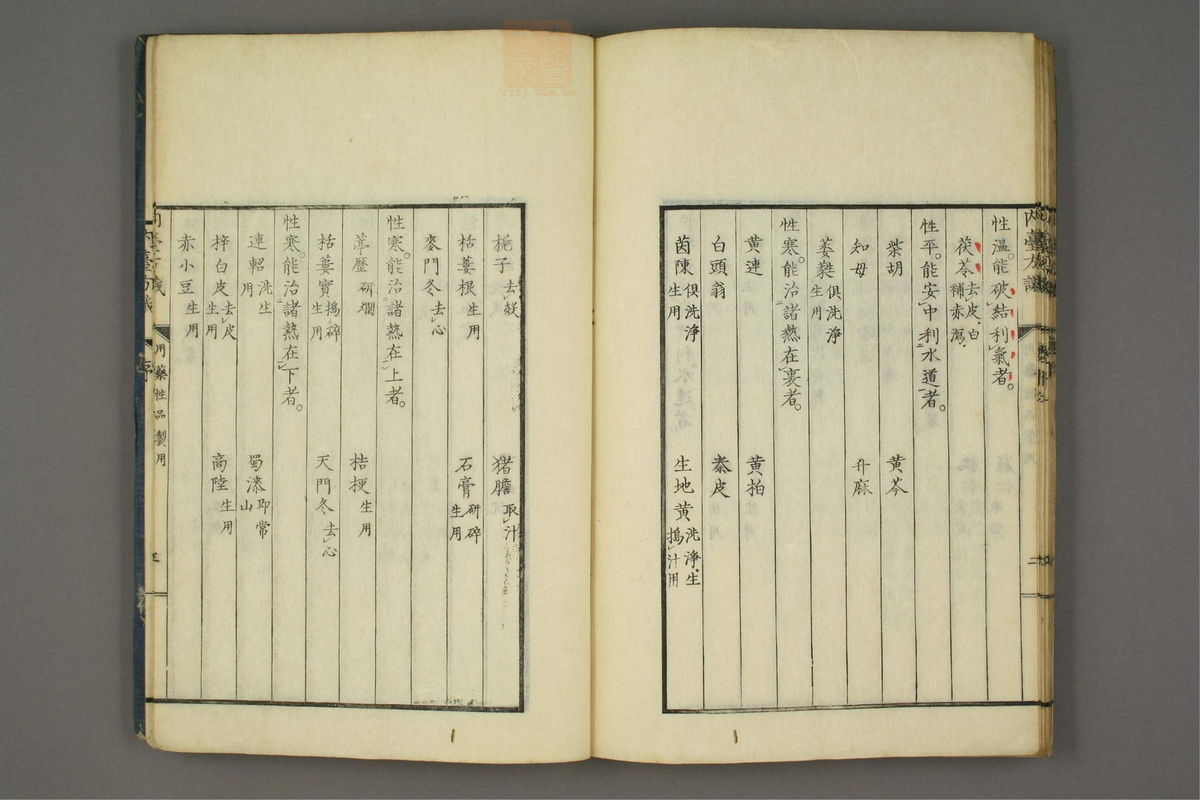 性溫。能破結利氣者。
茯苓去皮、白補赤瀉、
性平。能安中利水道者。
柴胡 黃芩
知母 升麻
萎蕤俱洗淨生用
性寒。能治諸熱在裏者。
黃連 黃柏
白頭翁 秦皮
茵陳俱洗淨生用 生地黃洗淨、生搗汁用
梔子去殼 猪膽取汁
栝蔞根生用 石膏研碎生用
麥門冬去心
性寒。能治諸熱在上者。
葶歷研爛 桔梗生用
栝蔞實搗碎生用 天門冬去心
性寒。能治諸熱在下者。
連軺洗生用 蜀漆即常山
梓白皮去皮生用 商陸生用
赤小豆生用
用藥性品製用 三